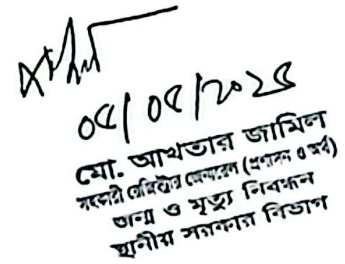 ০৫/০৫/২০২৫
মো. আখতার জামিল
সহকারী রেজিস্ট্রার জেনারেল (প্রশাসন ও অর্থ)
জন্ম ও মৃত্যু নিবন্ধন
স্থানীয় সরকার বিভাগ